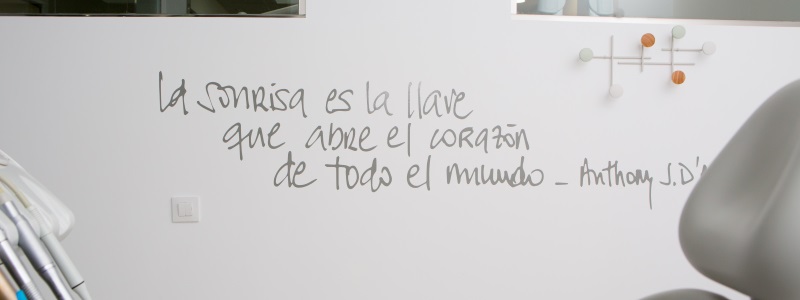 la sonrisa es la llave
que abre el corazón
de todo el mundo - Anthony J. D'